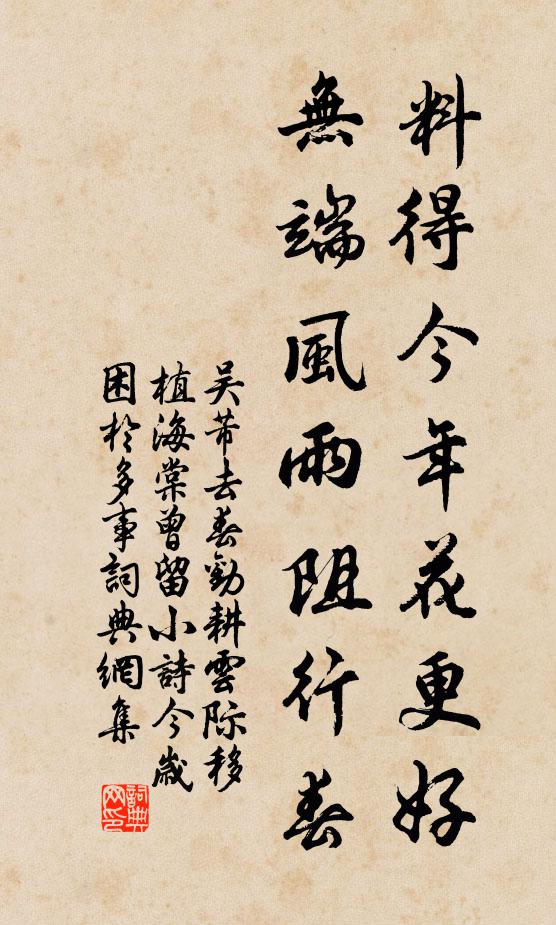 料得今年花更好
無端風雨阻行春
吴芾去春勸耕雲際移
植海棠曾留小詩今歲
困於多事詞典網集
詞典網印